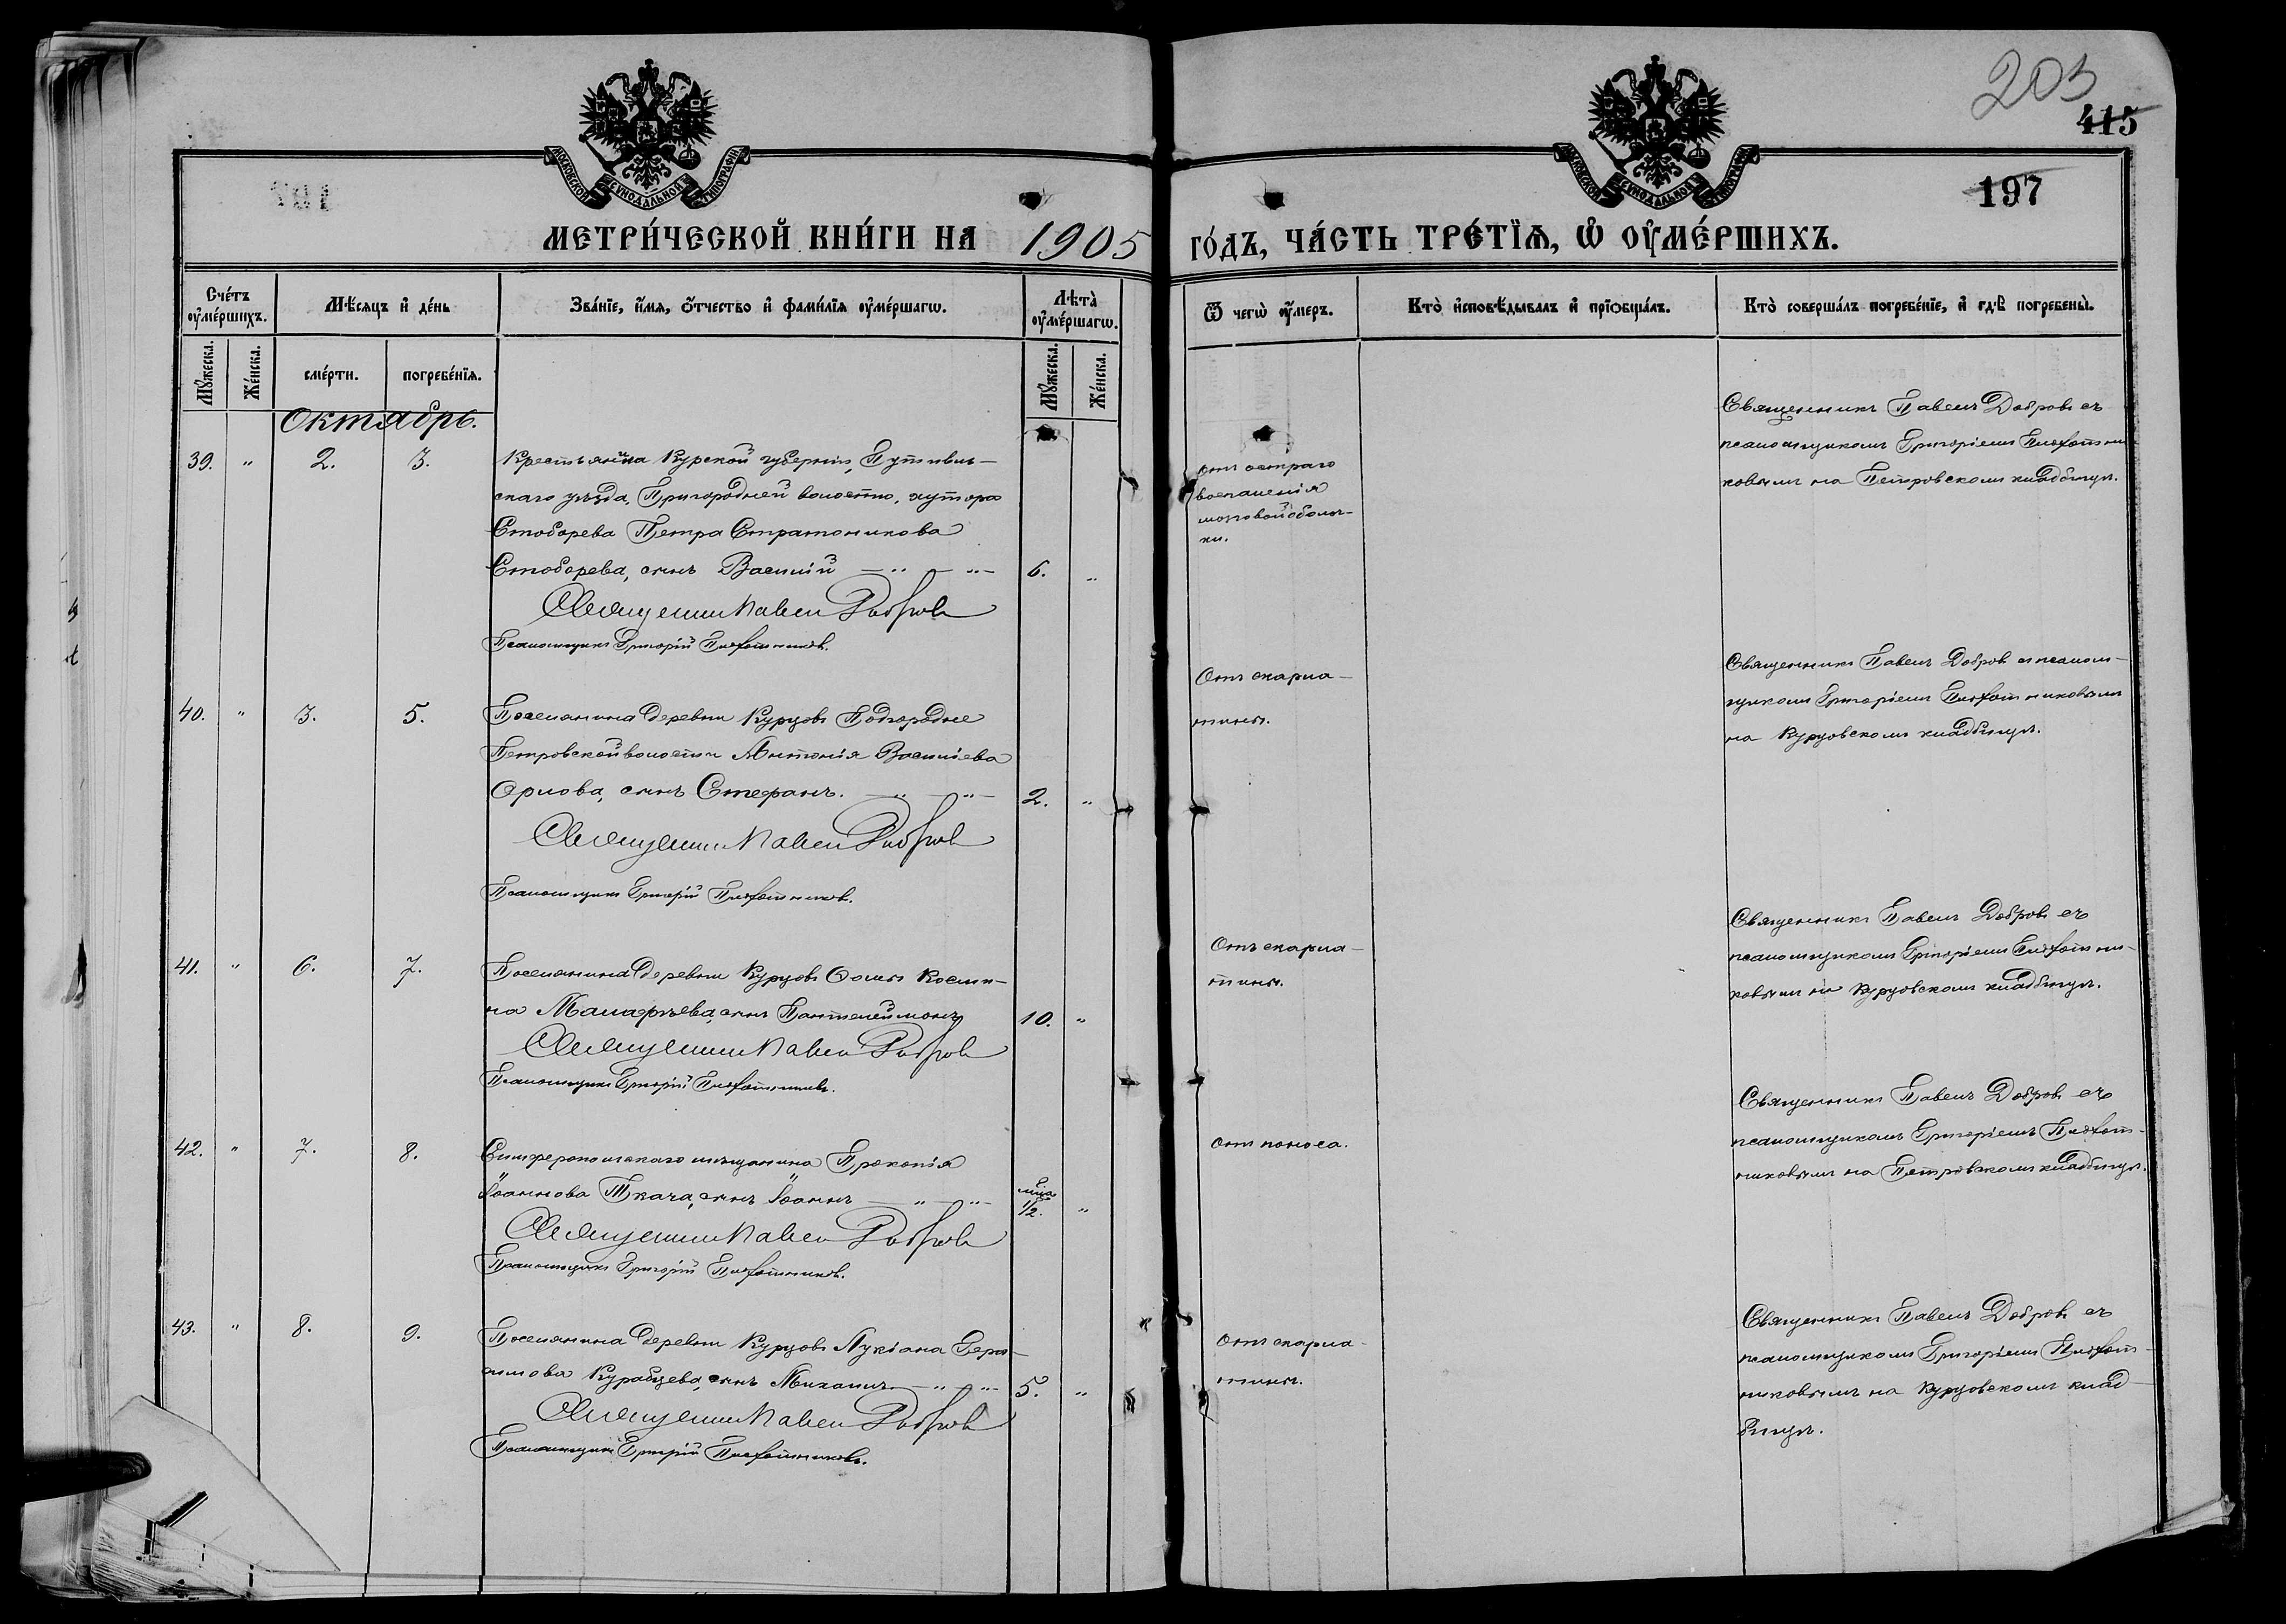 203
415
197
МОСКОВСКОЙ СѴНОДАЛЬНОЙ ТИПОГРАФІИ
МОСКОВСКОЙ СѴНОДАЛЬНОЙ ТИПОГРАФІИ
МЕТРИ́ЧЕСКОЙ КНИ́ГИ НА 1905 ГО́ДЪ, ЧА́СТЬ ТРЕ́ТЇѦ, Ѡ҆ ОУ҆МЕ́РШИХЪ.
Сче́тъ оу҆ме́ршихъ.
Мѣ́сяцъ и҆ де́нь
Зва́нїе, и҆́мя, ѻ҆́тчество и҆ фами́лїя оу҆ме́ршагѡ.
Лѣта̀ оу҆ме́ршагѡ.
Ѿ чегѡ̀ оу҆́меръ.
Кто̀ и҆сповѣ́дывалъ и҆ прїѻбща́лъ.
Кто̀ соверша́лъ погребе́нїе, и҆ гдѣ̀ погребены̀.
Мꙋ́жеска. Же́нска. сме́рти. погребе́нїя. Мꙋ́жеска. Же́нска.
Октябрь.
39. " 2. 3.
Крестьянина Курской губерніи, Путивль-
скаго уѣзда, Пригородней волости, хутора
Стоборева Петра Стратоникова
Стоборева, сынъ Василий — " — " — 6. "
Священникъ Павелъ Добровъ
Псаломщикъ Григорій Плотниковъ.
Отъ остраго
воспаленія
мозговой оболоч-
ки.
Священникъ Павелъ Добровъ съ
псаломщикомъ Григоріемъ Плотни
ковымъ на Петровскомъ кладбищѣ.
40. " 3. 5.
Поселянина деревни Курцовъ Подгородне
Петровской волости Антонія Васильева
Орлова, сынъ Стефанъ. — " — " — 2. "
Священникъ Павелъ Добровъ
Псаломщикъ Григорій Плотниковъ.
Отъ скарла-
тины.
Священникъ Павелъ Добровъ съ псалом-
щикомъ Григоріемъ Плотниковымъ
на Курцовскомъ кладбищѣ.
41. " 6. 7.
Поселянина деревни Курцовъ Ѳомы Косми-
на Малафѣева, сынъ Пантелеймонъ 10. "
Священникъ Павелъ Добровъ
Псаломщикъ Григорій Плотниковъ.
Отъ скарла-
тины.
Священникъ Павелъ Добровъ съ
псаломщикомъ Григоріемъ Плотни-
ковымъ на Курцовскомъ кладбищѣ.
42. " 7. 8.
Симферопольскаго мѣщанина Прокопія
Іоаннова Ткача, сынъ Іоаннъ — " — " — мѣс. 1/2. "
Священникъ Павелъ Добровъ
Псаломщикъ Григорій Плотниковъ.
Отъ поноса.
Священникъ Павелъ Добровъ съ
псаломщикомъ Григоріемъ Плот-
никовымъ на Петровскомъ кладбищѣ.
43. " 8. 9.
Поселянина деревни Курцовъ Лукіана Гера-
симова Курабцева, сынъ Михаилъ — " — " — 5. "
Священникъ Павелъ Добровъ
Псаломщикъ Григорій Плотниковъ.
Отъ скарла-
тины.
Священникъ Павелъ Добровъ съ
псаломщикомъ Григоріемъ Плот-
никовымъ на Курцовскомъ клад-
бищѣ.